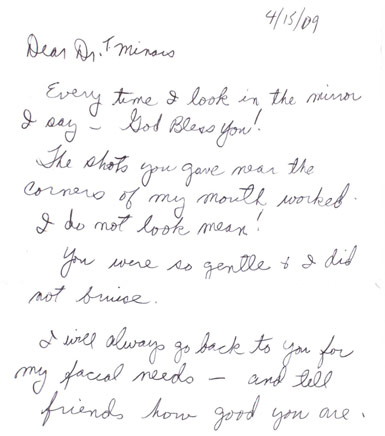 4/15/09
Dear Dr. Minars
Every time I look in the mirror
I say – God Bless You!
The shots you gave near the
corners of my mouth worked.
I do not look mean!
You were so gentle & I did
not bruise.
I will always go back to you for
my facial needs – and tell
friends how good you are.